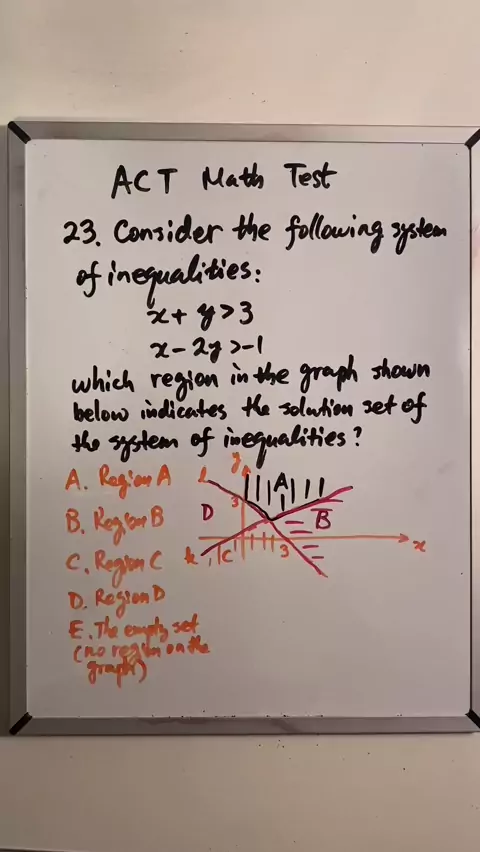 ACT Math Test
23. Consider the following system
of inequalities:
x + y > 3
x - 2y > -1
which region in the graph shown
below indicates the solution set of
the system of inequalities?
A. Region A
B. Region B
C. Region C
D. Region D
E. The empty set
(no region on the
graph)
y
l
A
3
D
B
k
C
3
x